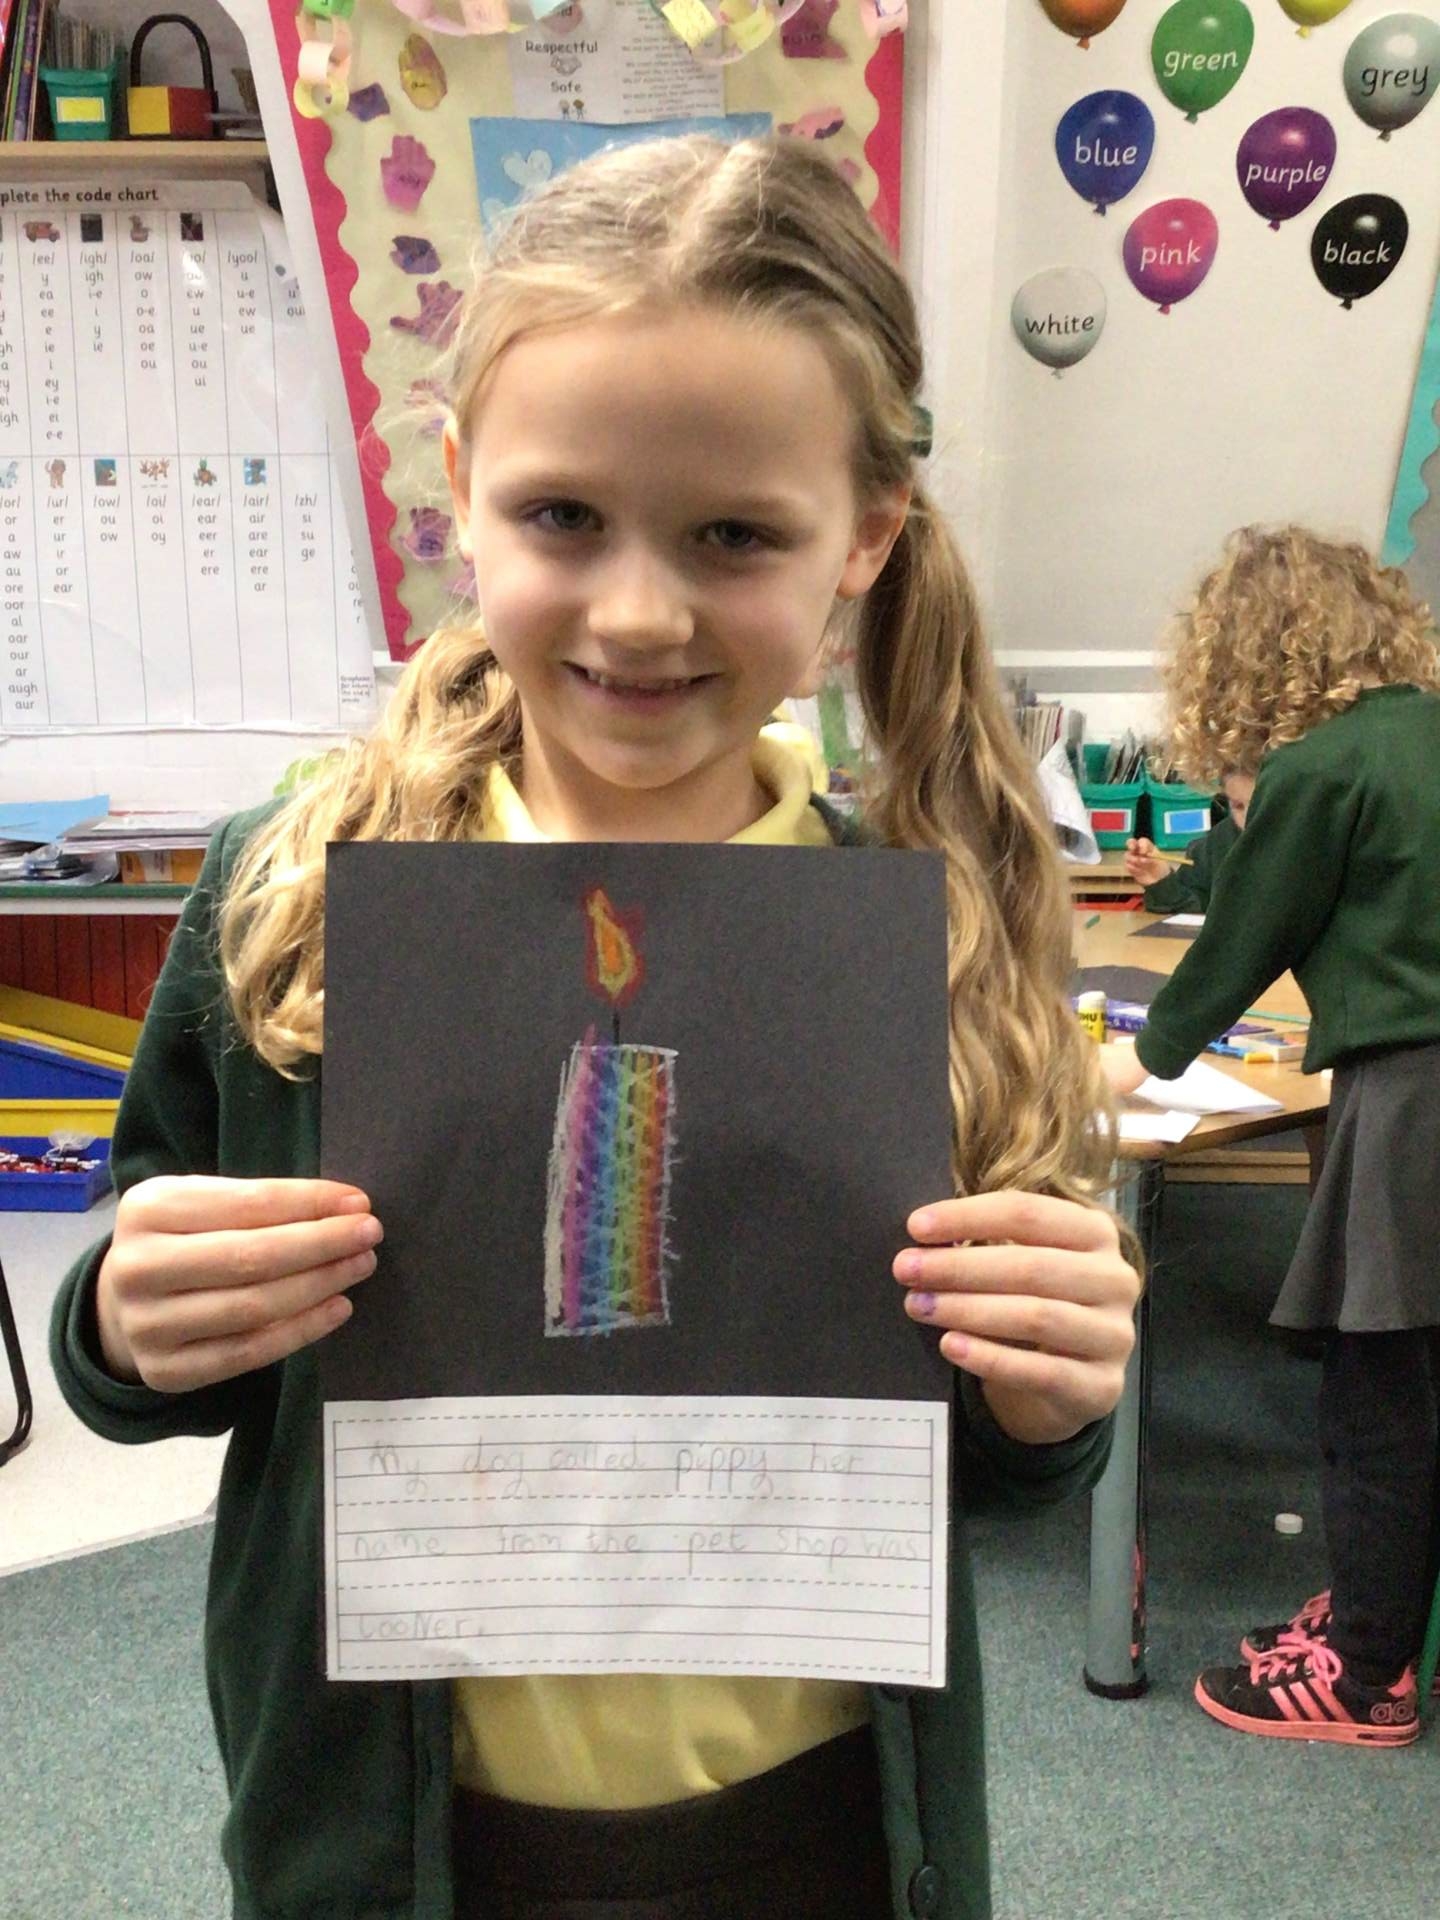 Respectful
Safe
green
grey
blue
purple
pink
black
white
plete the code chart
/ee/ /igh/ /oa/ /oo/ /yoo/
y igh ow oo u
ea i-e o ew u-e
ee i o-e u ew
e y oa ue ue
ie ie oe u-e
i ou ou
ey ui
i-e
ei
e-e
/or/ /ur/ /ow/ /oi/ /ear/ /air/ /zh/
or er ou oi ear air si
a ur ow oy eer are su
aw ir er ear ge
au or ere ere
ore ear ar
oor
al
oar
our
ar
augh
aur
My dog called pippy her
name from the pet Shop was
LooNer.